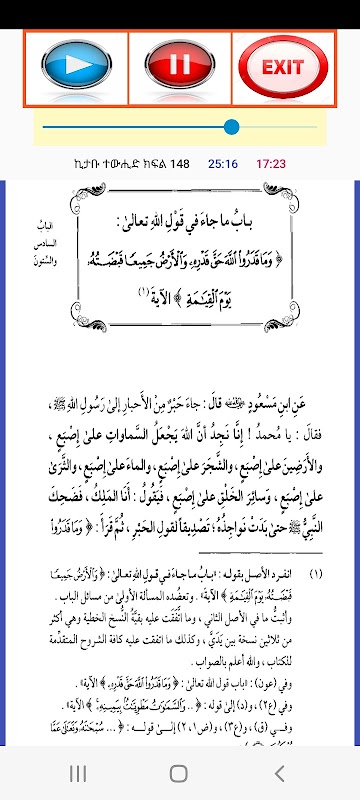 EXIT
ኪታቡ ተውሒድ ክፍል 148 25:16 17:23
بابُ ما جاءَ في قَوْلِ اللهِ تعالىٰ :
﴿ وَمَا قَدَرُوا۟ ٱللَّهَ حَقَّ قَدْرِهِۦ وَٱلْأَرْضُ جَمِيعًا قَبْضَتُهُۥ
يَوْمَ ٱلْقِيَٰمَةِ ﴾ الآيةَ (١)
البابُ
السادس
والستُّونَ
عَنِ ابنِ مَسْعُودٍ رضي الله عنه قالَ : جاءَ حَبْرٌ مِنْ الأَحبارِ إلىٰ رَسُولِ اللهِ ﷺ ،
فقالَ : يا محمدُ ! إِنَّا نَجِدُ أنَّ اللهَ يَجْعَلُ السَّماواتِ علىٰ إِصْبَعٍ ،
والأَرَضِينَ علىٰ إِصْبَعٍ ، والشَّجَرَ علىٰ إِصْبَعٍ ، والماءَ علىٰ إِصْبَعٍ ، والثَّرىٰ
علىٰ إِصْبَعٍ ، وسائِرَ الخَلْقِ علىٰ إِصْبَعٍ ، فيَقُولُ : أَنَا المَلِكُ ، فَضَحِكَ
النَّبِيُّ ﷺ حتىٰ بَدَتْ نَواجِذُهُ ؛ تَصْدِيقاً لقولِ الحَبْرِ ، ثُمَّ قَرَأَ : ﴿ وَمَا قَدَرُوا۟
(١) انفرد الأصل بقوله : «بابُ ما جاءَ في قولِ اللهِ تعالىٰ : ﴿ وَٱلْأَرْضُ جَمِيعًا
قَبْضَتُهُۥ يَوْمَ ٱلْقِيَٰمَةِ ﴾ الآيةَ» . وتعضُده المسألة الأولىٰ من مسائل الباب .
وأثبتُّ ما في الأصل الثاني ، وما اتَّفَقَت عليه بقيَّةُ النُّسخ الخطية وهي أكثر
من ثلاثين نسخة بين يَدَيَّ ، وكذلك ما اتفقت عليه كافة الشروح المتقدِّمة
للكتاب ، والله أعلم بالصواب .
وفي (عون) : «باب قول الله تعالىٰ : ﴿ وَمَا قَدَرُوا۟ ٱللَّهَ حَقَّ قَدْرِهِۦ ﴾ الآية» .
وفي (ع٢) ، و(د) إلىٰ قوله : ﴿ .. وَٱلسَّمَٰوَٰتُ مَطْوِيَّٰتٌۢ بِيَمِينِهِۦ ﴾ الآية» .
وفي (ق) ، و(ع٣) ، و(ض١،٢) إلىٰ قوله : ﴿ ... سُبْحَٰنَهُۥ وَتَعَٰلَىٰ عَمَّا